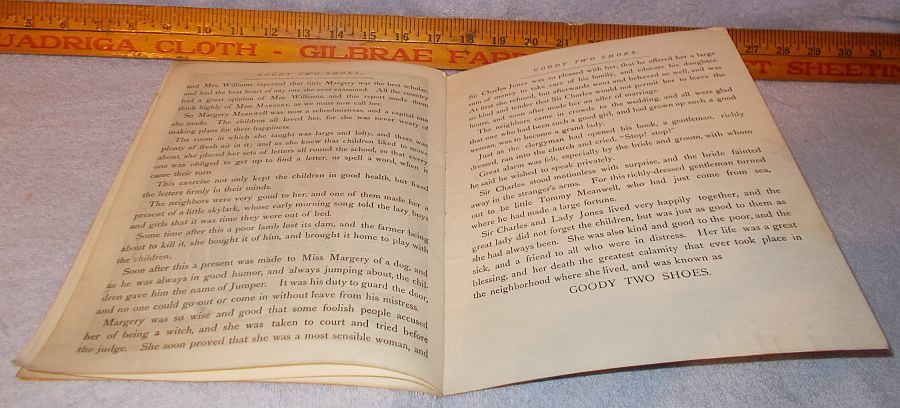 5 10 11 12 13 14 15 16 17 18 19 27 28 29 30 31
QUADRIGA CLOTH - GILBRAE FAB
T SHEETIN
GOODY TWO SHOES.
and Mrs. Williams reported that little Margery was the best scholar,
and had the best heart of any one she ever examined. All the country
had a great opinion of Mrs. Williams, and this report made them
think highly of Miss Margery, as we must now call her.
So Margery Meanwell was now a schoolmistress, and a capital one
she made. The children all loved her, for she was never weary of
making plans for their happiness.
The room in which she taught was large and lofty, and there was
plenty of fresh air in it; and as she knew that children liked to move
about, she placed her sets of letters all round the school, so that every
one was obliged to get up to find a letter, or spell a word, when it
came their turn.
This exercise not only kept the children in good health, but fixed
the letters firmly in their minds.
The neighbors were very good to her, and one of them made her a
present of a little skylark, whose early morning song told the lazy boys
and girls that it was time they were out of bed.
Some time after this a poor lamb lost its dam, and the farmer being
about to kill it, she bought it of him, and brought it home to play with
the children.
Soon after this a present was made to Miss Margery of a dog, and
as he was always in good humor, and always jumping about, the chil-
dren gave him the name of Jumper. It was his duty to guard the door,
and no one could go out or come in without leave from his mistress.
Margery was so wise and good that some foolish people accused
her of being a witch, and she was taken to court and tried before
the judge. She soon proved that she was a most sensible woman, and
GOODY TWO SHOES.
Sir Charles Jones was so pleased with her, that he offered her a large
sum of money to take care of his family, and educate his daughter.
At first she refused, but afterwards went and behaved so well, and was
so kind and tender that Sir Charles would not permit her to leave the
house, and soon after made her an offer of marriage.
The neighbors came in crowds to the wedding, and all were glad
that one who had been such a good girl, and had grown up such a good
woman, was to become a grand lady.
Just as the clergyman had opened his book, a gentleman, richly
dressed, ran into the church and cried, "Stop! stop!"
Great alarm was felt, especially by the bride and groom, with whom
he said he wished to speak privately.
Sir Charles stood motionless with surprise, and the bride fainted
away in the stranger's arms. For this richly-dressed gentleman turned
out to be little Tommy Meanwell, who had just come from sea,
where he had made a large fortune.
Sir Charles and Lady Jones lived very happily together, and the
great lady did not forget the children, but was just as good to them as
she had always been. She was also kind and good to the poor, and the
sick, and a friend to all who were in distress. Her life was a great
blessing, and her death the greatest calamity that ever took place in
the neighborhood where she lived, and was known as
GOODY TWO SHOES.